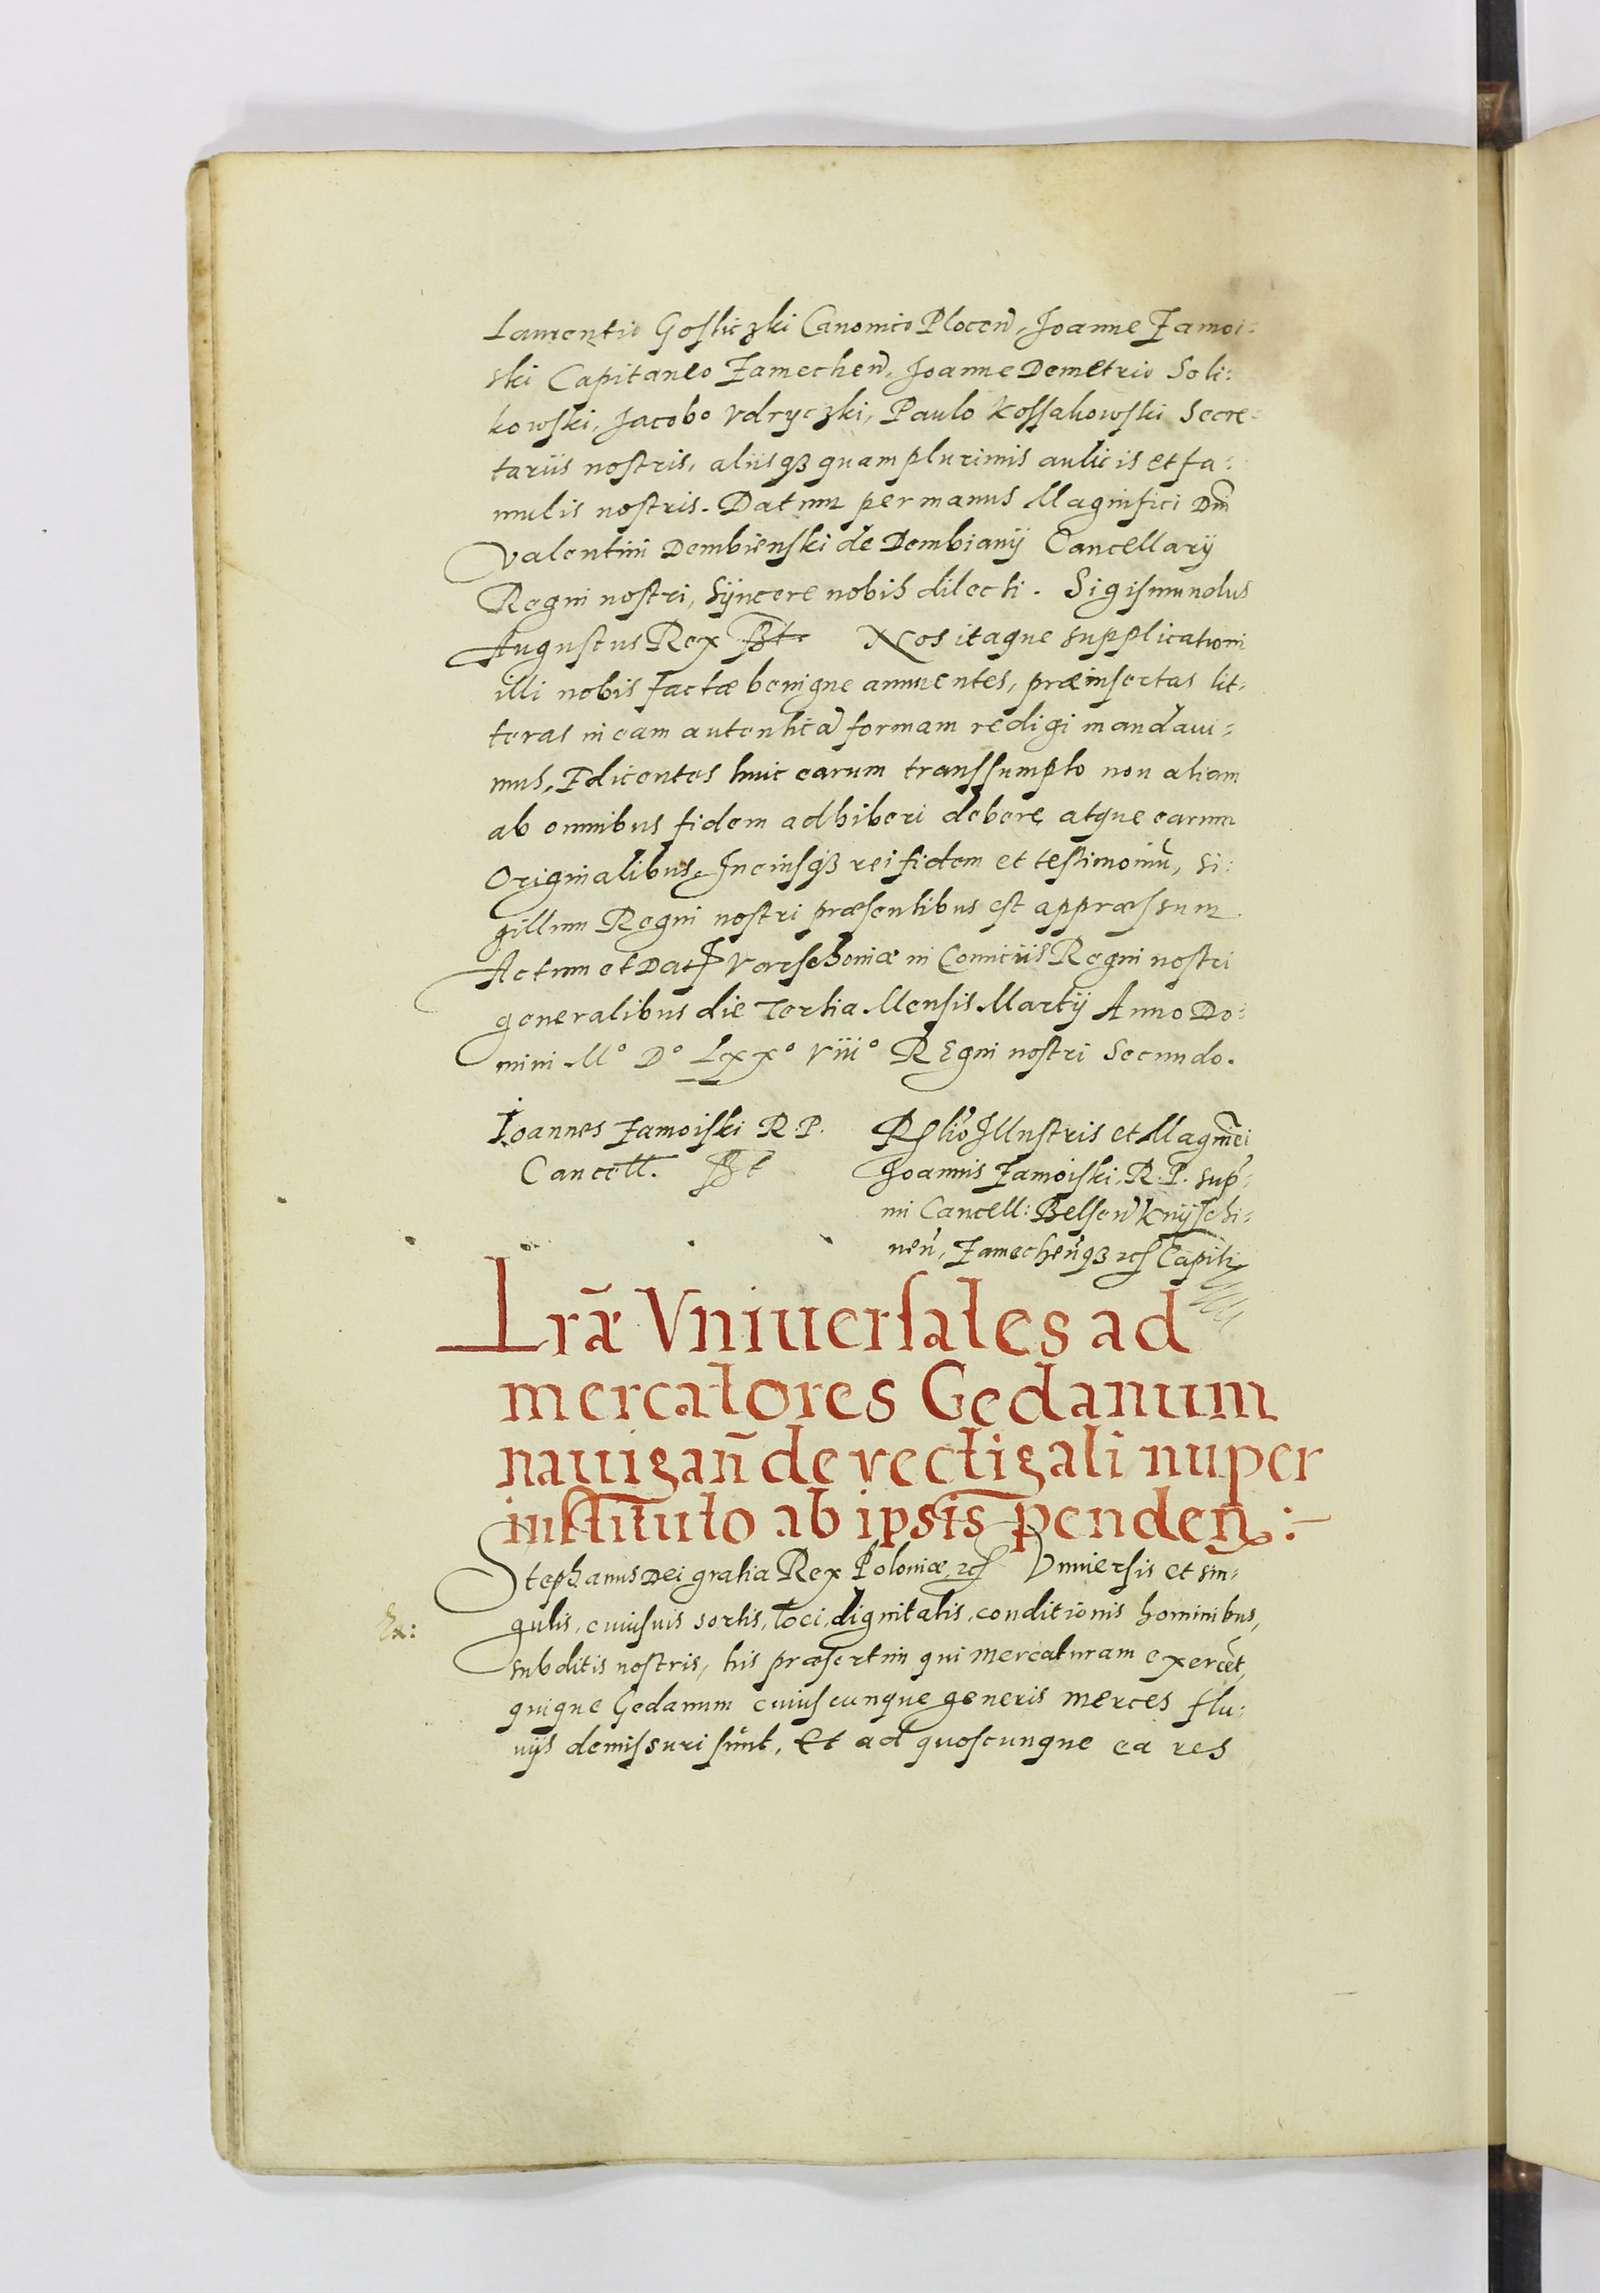 Laurentio Gosliczki Canonico Plocen̄, Joanne Zamoi:
ski Capitaneo Zamechen̄, Joanne Demetrio Soli:
kowski, Jacobo Vdryczki, Paulo Kossakowski Secre:
tariis nostris, aliisqȝ quam plurimis aulicis et fa:
mulis nostris. Datum per manus Magnifici Dn̄i
Valentini Dembienski de Dembiany Cancellarij
Regni nostri, syncere nobis dilecti. Sigismundus
Augustus Rex Sst. Nos itaque supplicationi
illi nobis factæ benigne annuentes, præinsertas lit:
teras in eam autenticā formam redigi mandaui:
mus, Edicentes huic earum transsumpto non aliam
ab omnibus fidem adhiberi debere, atque earum
Originalibus. In cuiusqȝ rei fidem et testimoniū, si:
gillum Regni nostri præsentibus est appræssum.
Actum et Dat Varschouiæ in Comiciis Regni nostri
generalibus die Tertia Mensis Martij Anno Do:
mini M° D° Lxx° Viii° Regni nostri Secundo.
Ioannes Zamoiski R. P.
Cancell. Sst
Relio Illustris et Magnēi
Joannis Zamoiski R. P. sup̄:
mi Cancell: Belsen̄ Knyschi:
nen̄, Zamechen̄qȝ etc Capit:
Lr̄æ Vniuersales ad
mercatores Gedanum
nauigan̄ de vectigali nuper
instituto ab ipsis penden̄:
Stephanus Dei gratia Rex Poloniæ etc Vniuersis et sin:
gulis, cuiusuis sortis, loci, dignitatis, conditionis hominibus,
Ex:
subditis nostris, his præsertim qui mercaturam exercēt,
quique Gedanum cuiuscunque generis merces flu:
uijs demissuri sunt, Et ad quoscunque ea res